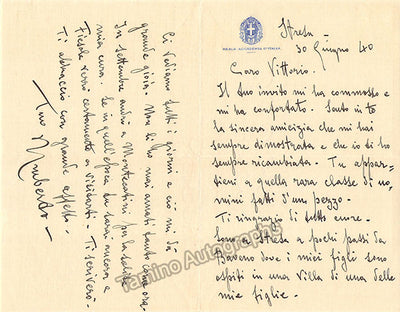 REALE ACCADEMIA D'ITALIA
Stresa -
30 Giugno 40
Caro Vittorio.
Il tuo invito mi ha commosso e
mi ha confortato. Sento in to
la sincera amicizia che mi hai
sempre dimostrata e che io ti ho
sempre ricambiata. Tu appar=
tieni a quella rara classe di uo,
mini fatti d'un pezzo.
Ti ringrazio di tutto cuore.
Sono a Stresa a pochi passi da
Baveno dove i miei figli sono
ospiti in una Villa di una delle
mie figlie.
Ci vediamo tutti i giorni e ciò mi da
grande gioia. Non li ho mai amati tanto come ora.
In settembre andrò a Montecatini per la solita
mia cura. Se in quell'epoca tu sarai ancora a
Fiesole verrò certamente a visitarti. Ti scriverò.
Ti abbraccio con grande affetto.
Tuo Umberto -
Tamino Autographs